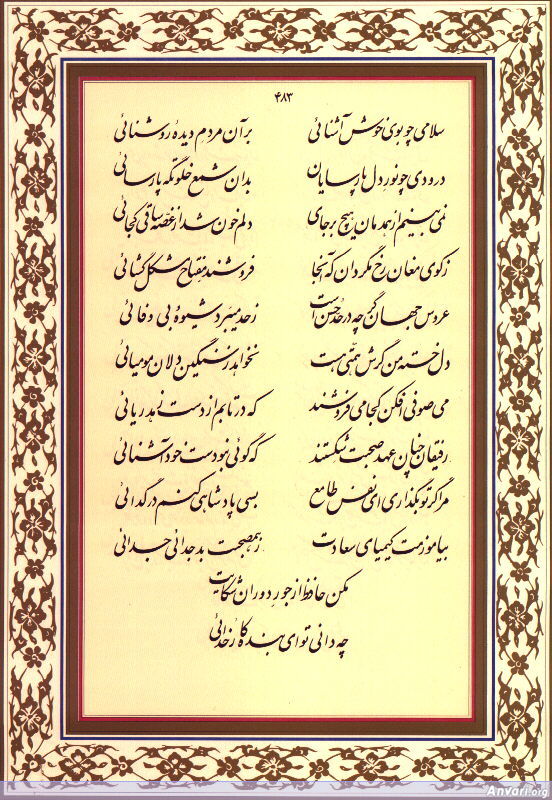 ۴۸۳
سلامی چو بوی خوش آشنائی بر آن مردم دیدهٔ روشنائی
درودی چو نور دل پارسایان بدان شمع خلوتگه پارسائی
نمی‌بینم از همدمان هیچ بر جای دلم خون شد از غصه ساقی کجائی
ز کوی مغان رخ مگردان که آنجا فروشند مفتاح مشکل گشائی
عروس جهان گرچه در حد حسن است ز حد میبرد شیوهٔ بی وفائی
دل خسته من گرش همتی هست نخواهد ز سنگین دلان مومیائی
می صوفی افکن کجا میفروشند که در تابم از دست زهد ریائی
رفیقان چنان عهد صحبت شکستند که گوئی نبودست خود آشنائی
مرا گر تو بگذاری ای نفس طامع بسی پادشاهی کنم در گدائی
بیاموزمت کیمیای سعادت ز همصحبت بد جدائی جدائی
مکن حافظ از جور دوران شکایت
چه دانی تو ای بنده کار خدائی
Anvari.org